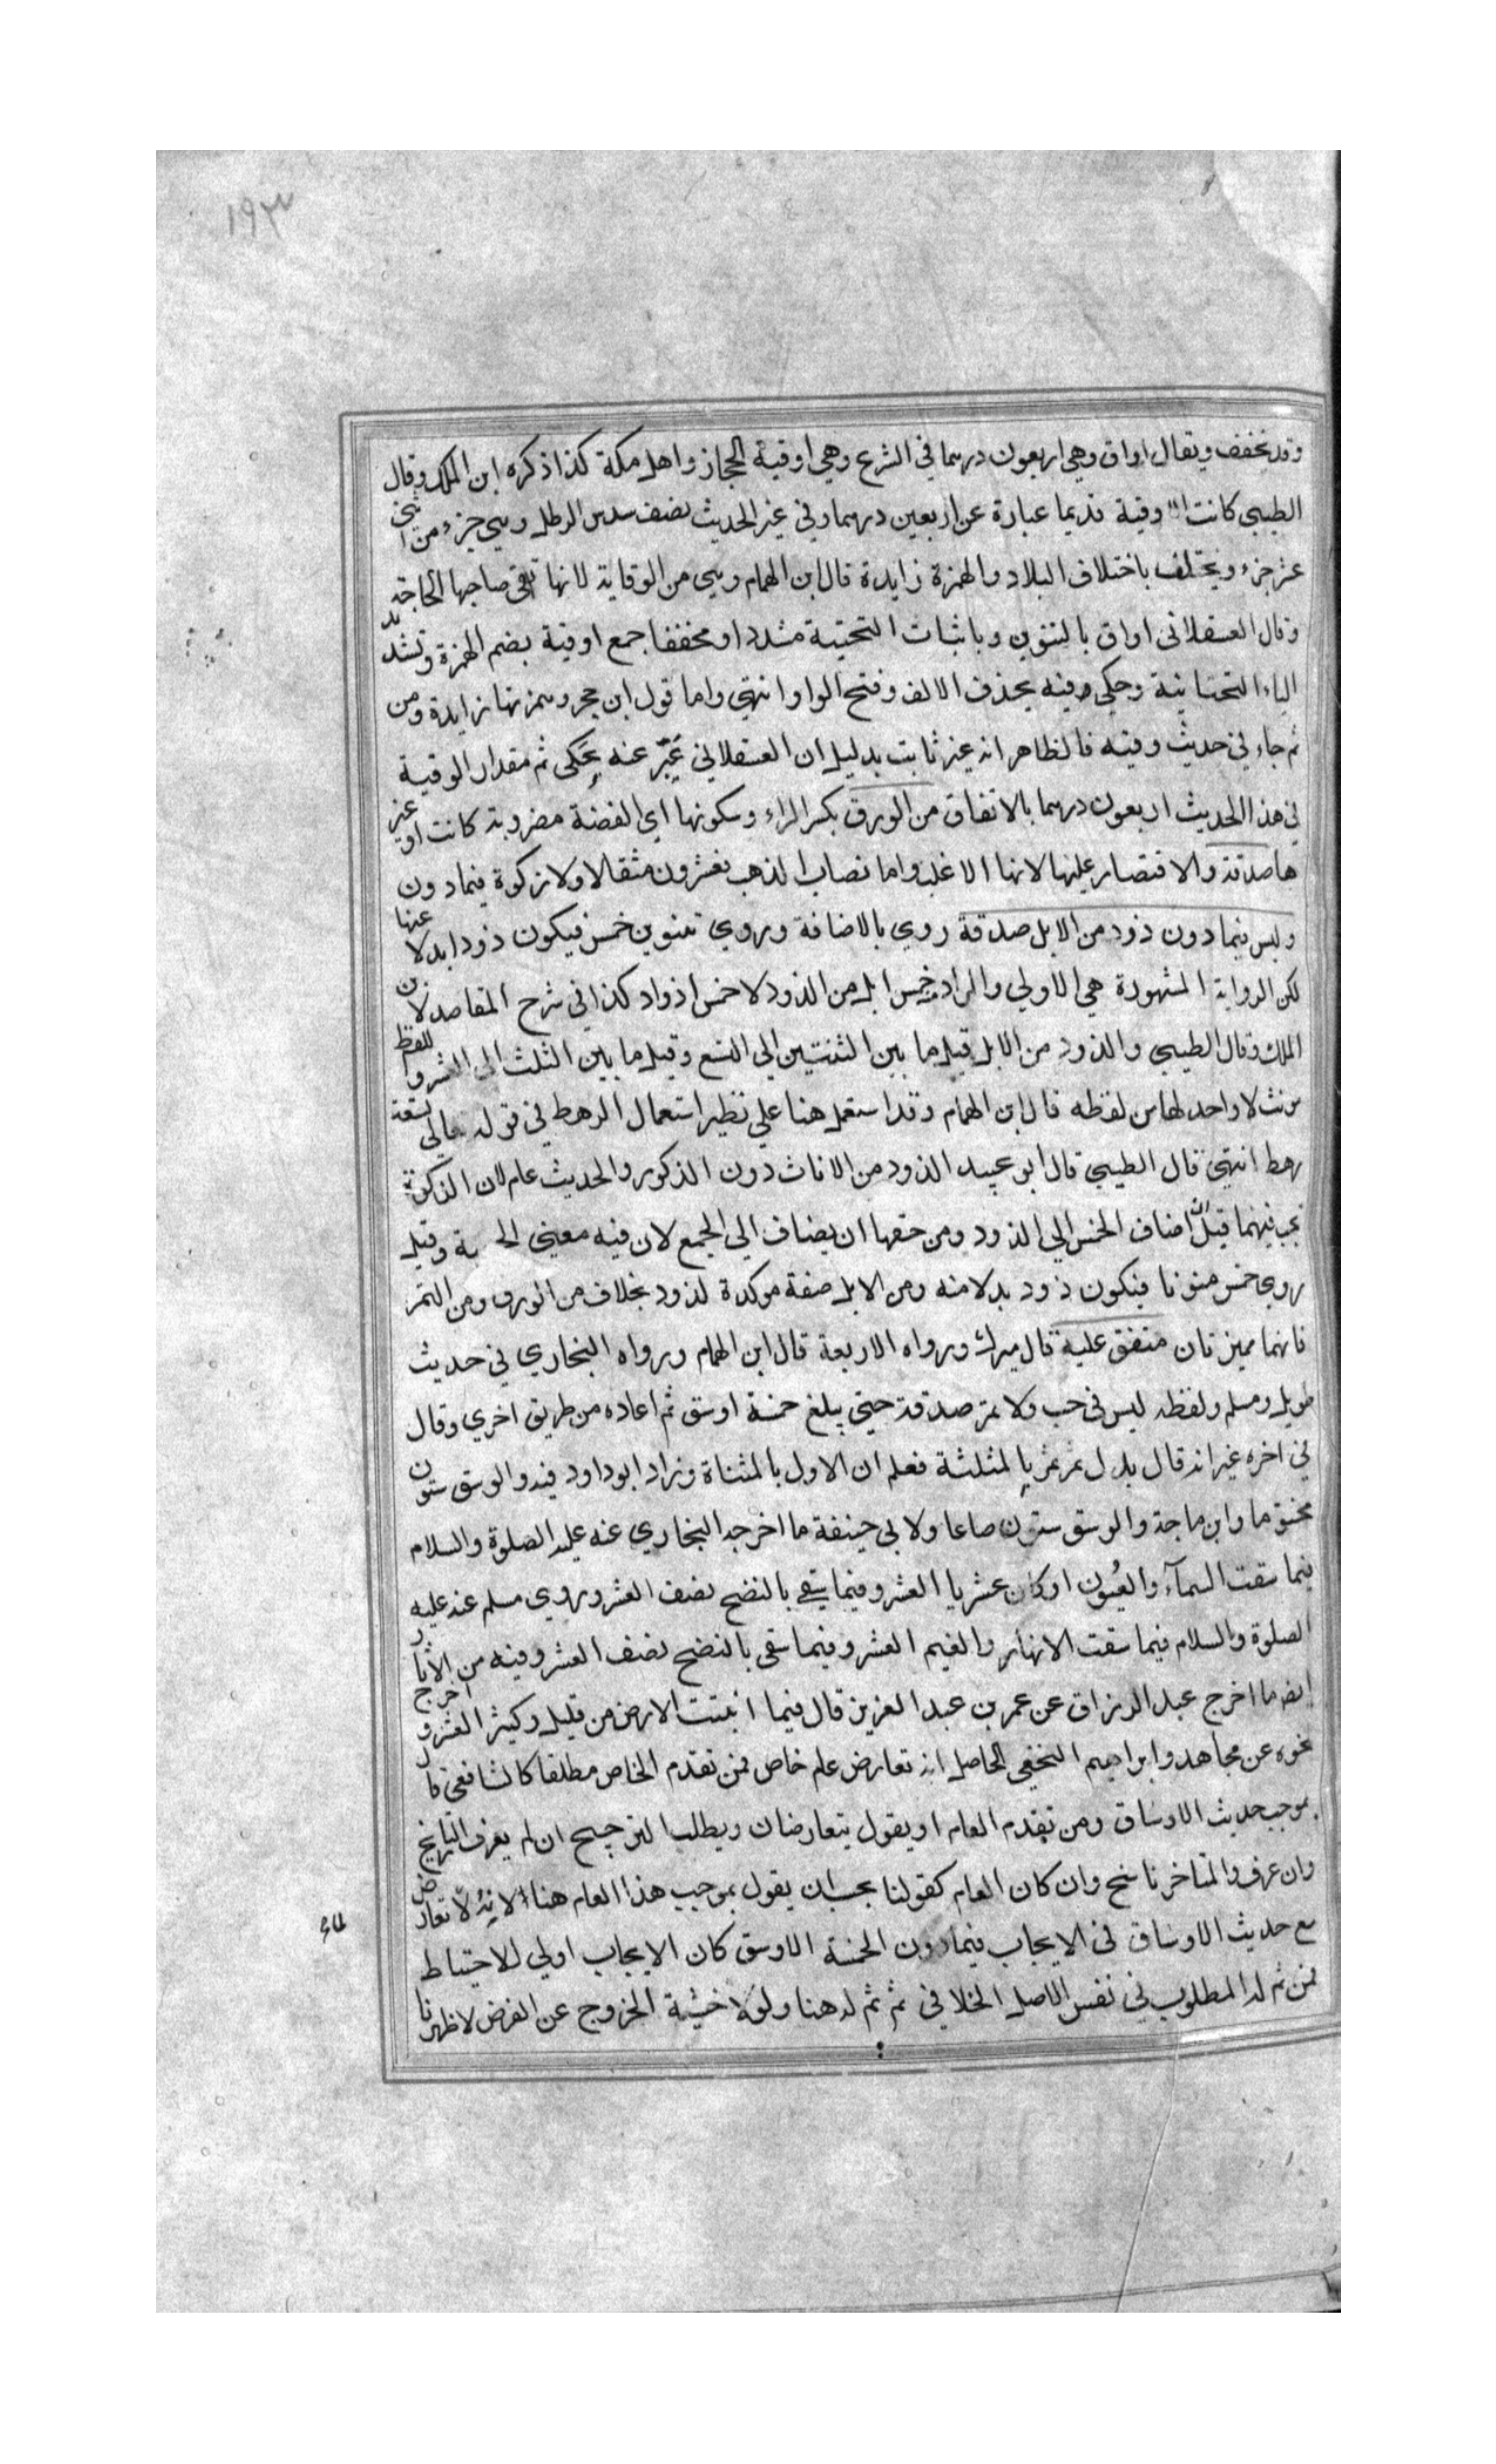 ١٩٣
وقد يخفف ويقال اواق وهي اربعون درهما في الشرع وهي اوقية الحجاز واهل مكة كذا ذكره ابن الملك وقال
الطيبي كانت الاوقية قديما عبارة عن اربعين درهما وفي غير الحديث نصف سدس الرطل وهي جزء من اثني
عشر جزء ويختلف باختلاف البلاد والهمزة زايدة قال ابن الهمام وهي من الوقاية لانها تقي صاحبها الحاجة
وقال العسقلاني اواق بالتنوين وباثبات التحتية مشددا ومخففا جمع اوقية بضم الهمزة وتشديد
الياء التحتانية وحكي وقيه بحذف الالف وفتح الواو انتهي واما قول ابن حجر وهمزتها زايدة ومن
ثم جاء في حديث وقيه فالظاهر انه غير ثابت بدليل ان العسقلاني عَبّر عنه بِحَكى ثم مقدار الوقية
في هذا الحديث اربعون درهما بالاتفاق من الورق بكسر الراء وسكونها اي الفضة مضروبة كانت او غير
ها صدقة والاقتصار عليها لانها الاغلب واما نصاب الذهب فعشرون مثقالا ولا زكوة فيما دون
وليس فيما دون ذود من الابل صدقة روي بالاضافة وروي تنوين خمس فيكون ذودا بدلا عنها
لكن الرواية المشهورة هي الاولي والمراد خمس ابل من الذود لا خمس اذواد كذا في شرح المقاصد لابن
الملك وقال الطيبي والذود من الابل قيل ما بين الثنتين الي التسع وقيل ما بين الثلث الى العشر واللفظ
مونث لا واحد لها من لفظه قال ابن الهمام وقد استعمل هنا علي نظير استعمال الرهط في قوله تعالي تسعة
رهط انتهي قال الطيبي قال ابو عبيد الذود من الاناث دون الذكور والحديث عام لان الذكوة
تجب فيهما قيل اضاف الخمس الي الذود ومن حقها ان يضاف الي الجمع لان فيه معني وقيل
روي خمس منونا فيكون ذود بدلا منه ومن الابل صفة موكدة لذود بخلاف من الورق ومن التمر
فانهما مميزتان متفق عليه قال ميرك ورواه الاربعة قال ابن الهمام ورواه البخاري في حديث
طويل ومسلم ولفظه ليس في حب ولا تمر صدقة حتي يبلغ خمسة اوسق ثم اعاده من طريق اخري وقال
في اخره غير انه قال بدل تمر ثمر بالمثلثة فعلم ان الاول بالمثناة وزاد ابو داود فيه والوسق ستون
مختوما وابن ماجة والوسق ستون صاعا ولابي حنيفة ما اخرجه البخاري عنه عليه الصلوة والسلام
فيما سقت السمآء والعُيون او كان عشريا العشر وفيما سقي بالنضح نصف العشر وروي مسلم عنه عليه
الصلوة والسلام فيما سقت الانهار والغيم العشر وفيما سقى بالنضح نصف العشر وفيه من الاثار
ايضا ما اخرج عبد الرزاق عن عمر بن عبد العزيز قال فيما انبتت الارض من قليل وكثير العشر واخرج
نحوه عن مجاهد وابراهيم النخعي الحاصل انه تعارض عام خاص فمن تقدم الخاص مطلقا كالشافعي قال
بموجب حديث الاوساق ومن تقدم العام او يقول يتعارضان ويطلب الترجيح ان لم يعرف التاريخ
وان عرف والمتاخر ناسخ وان كان العام كقولنا يجب ان يقول بموجب هذا العام هنا لانه لا تعارض
مع حديث الاوساق في الايجاب فيما دون الخمسة الاوسق كان الايجاب اولي للاحتياط
فمن ثم له المطلوب في نفس الاصل الخلافي ثم ثم له هنا ولولا خشية الخروج عن الغرض لاظهرنا